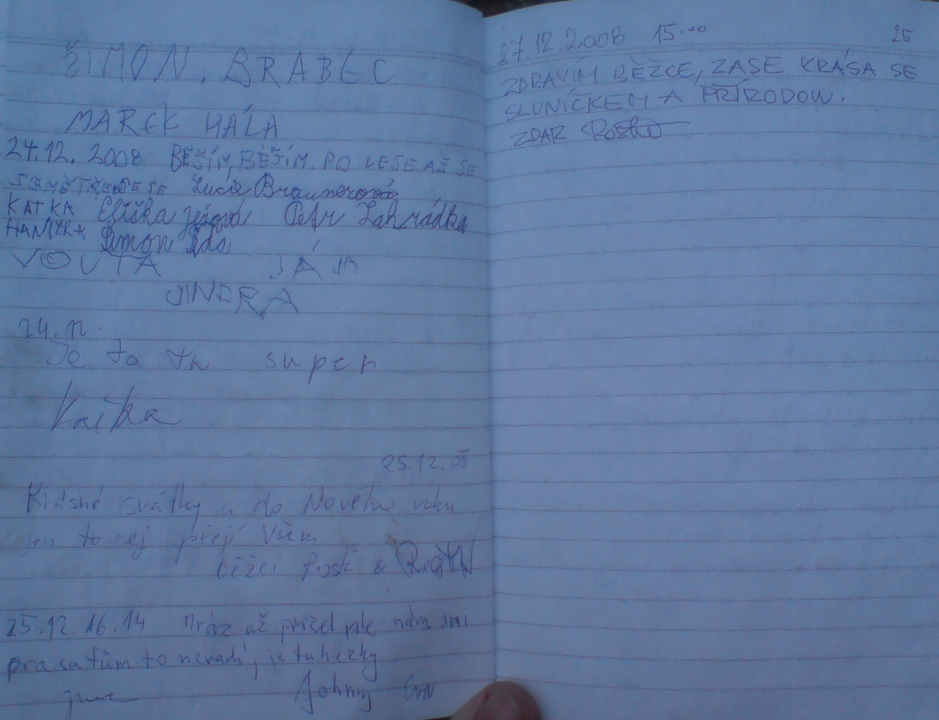 ŠIMON. BRABEC
MAREK HÁLA
24.12. 2008 BĚŽÍM, BĚŽÍM PO LESE AŽ SE
Lucie Braunerová
KATKA Eliška Petr Zahrádka
HANIČKA Šimon
VOJTA JÁ JÁ
JINDRA
24. 12.
Je to tu super
Katka
25.12.08
Krásné svátky a do Nového roku
jen to nej přejí Všem
běžci &
25.12. 16.14 Mráz už přišel, ale nám ani
prasatům to nevadí, je tu hezky
Johny
27.12.2008 15.00 25
ZDRAVÍM BĚŽCE, ZASE KRÁSA SE
SLUNÍČKEM A PŘÍRODOU.
ZDAR